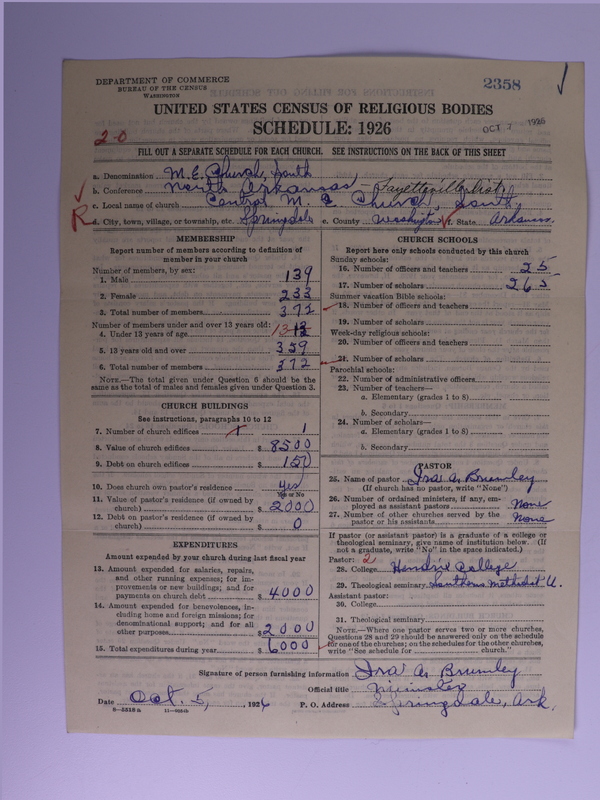 DEPARTMENT OF COMMERCE
BUREAU OF THE CENSUS
WASHINGTON
2358
UNITED STATES CENSUS OF RELIGIOUS BODIES
SCHEDULE: 1926
OCT 7 1926
20
FILL OUT A SEPARATE SCHEDULE FOR EACH CHURCH. SEE INSTRUCTIONS ON THE BACK OF THIS SHEET
a. Denomination M. E. Church, South
b. Conference North Arkansas Fayetteville Dist.
c. Local name of church Central M. E. Church, South
R
d. City, town, village, or township, etc. Springdale e. County Washington f. State Arkansas
MEMBERSHIP
Report number of members according to definition of member in your church
Number of members, by sex:
1. Male 139
2. Female 233
3. Total number of members 372
Number of members under and over 13 years old:
4. Under 13 years of age 13
5. 13 years old and over 359
6. Total number of members 372
NOTE.—The total given under Question 6 should be the same as the total of males and females given under Question 3.
CHURCH BUILDINGS
See instructions, paragraphs 10 to 12
7. Number of church edifices 1 1
8. Value of church edifices $ 8500
9. Debt on church edifices $ 150
10. Does church own pastor's residence yes
Yes or No
11. Value of pastor's residence (if owned by
church) $ 2000
12. Debt on pastor's residence (if owned by
church) $ 0
EXPENDITURES
Amount expended by your church during last fiscal year
13. Amount expended for salaries, repairs,
and other running expenses; for im-
provements or new buildings; and for
payments on church debt $ 4000
14. Amount expended for benevolences, in-
cluding home and foreign missions; for
denominational support; and for all
other purposes $ 2000
15. Total expenditures during year $ 6000
CHURCH SCHOOLS
Report here only schools conducted by this church
Sunday schools:
16. Number of officers and teachers 25
17. Number of scholars 263
Summer vacation Bible schools:
18. Number of officers and teachers
19. Number of scholars
Week-day religious schools:
20. Number of officers and teachers
21. Number of scholars
Parochial schools:
22. Number of administrative officers
23. Number of teachers—
a. Elementary (grades 1 to 8)
b. Secondary
24. Number of scholars—
a. Elementary (grades 1 to 8)
b. Secondary
PASTOR
25. Name of pastor Ira A. Brumley
(If church has no pastor, write "None")
26. Number of ordained ministers, if any, em-
ployed as assistant pastors None
27. Number of other churches served by the
pastor or his assistants None
If pastor (or assistant pastor) is a graduate of a college or
theological seminary, give name of institution below. (If
not a graduate, write "No" in the space indicated.)
Pastor: 2
28. College Hendrix College
29. Theological seminary Southern Methodist U.
Assistant pastor:
30. College
31. Theological seminary
NOTE.—Where one pastor serves two or more churches,
Questions 28 and 29 should be answered only on the schedule
for one of the churches; on the schedules for the other churches,
write "See schedule for church."
Signature of person furnishing information Ira A. Brumley
Official title Minister
Date Oct. 5, 1926 P. O. Address Springdale, Ark.